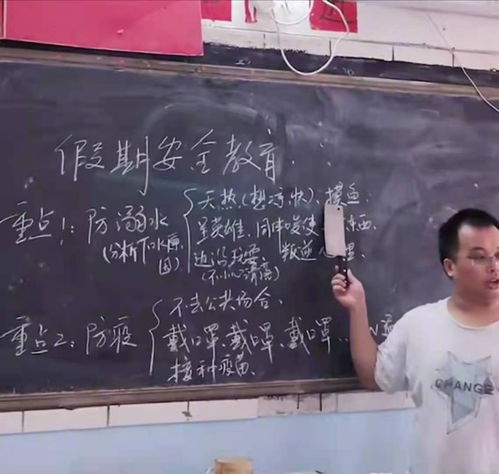 假期安全教育
重点1:防溺水
(分析下水原因)
天热(想凉快)、摸鱼
逞英雄、同伴唆使
东西
边沿玩耍
叛逆心理
(不小心滑落)
重点2:防疫
不去公共场合、
戴口罩、戴口罩、戴口罩…
接种疫苗、
CHANGE